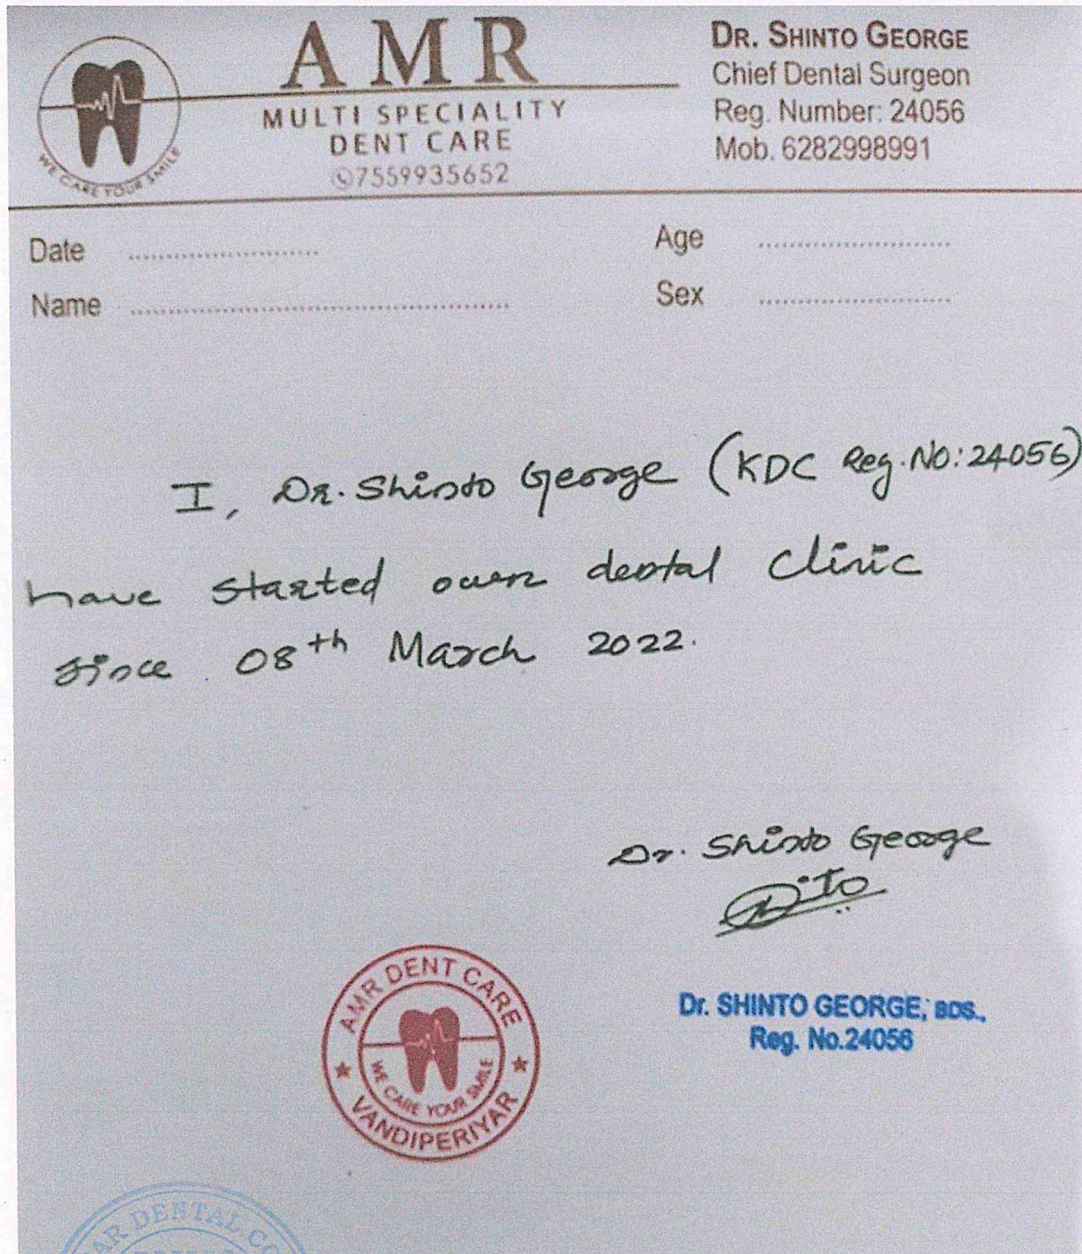 AMR
MULTI SPECIALITY
DENT CARE
7559935652
WE CARE YOUR SMILE
DR. SHINTO GEORGE
Chief Dental Surgeon
Reg. Number: 24056
Mob. 6282998991
Date ........................ Age ........................
Name ................................................ Sex ........................
I, Dr. Shinto George (KDC Reg. No: 24056)
have started own dental clinic
since 08th March 2022.
Dr. Shinto George
AMR DENT CARE
WE CARE YOUR SMILE
VANDIPERIYAR
Dr. SHINTO GEORGE, BDS.,
Reg. No.24056
AR DENTAL CO